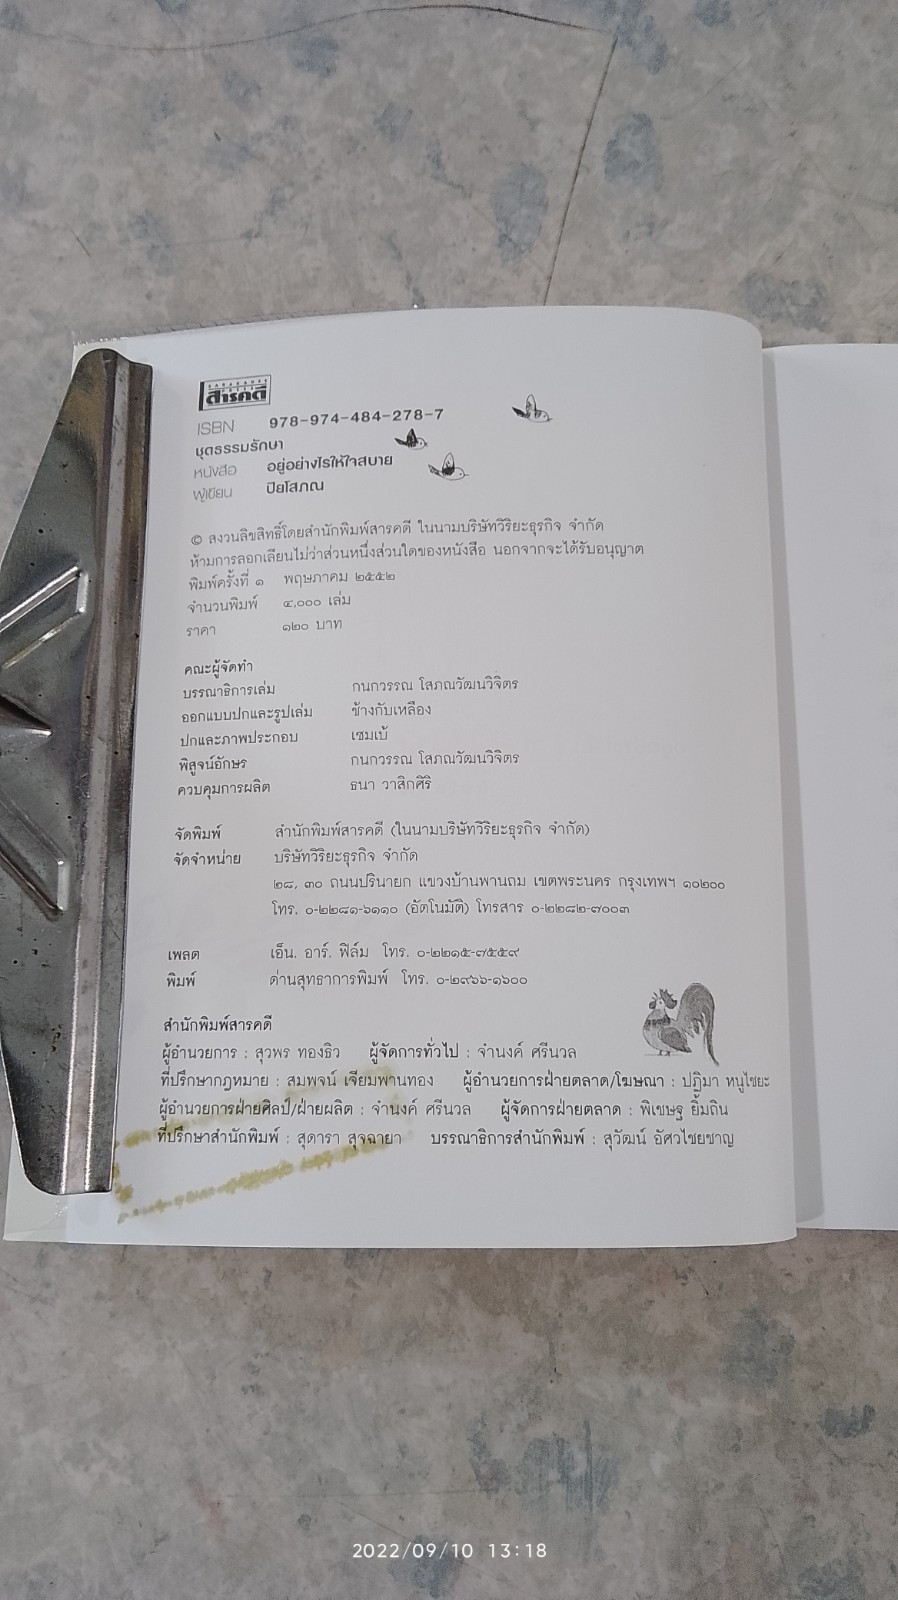 สารคดี
ISBN 978-974-484-278-7
ชุดธรรมรักษา
หนังสือ อยู่อย่างไรให้ใจสบาย
ผู้เขียน ปิยโสภณ
© สงวนลิขสิทธิ์โดยสำนักพิมพ์สารคดี ในนามบริษัทวิริยะธุรกิจ จำกัด
ห้ามการลอกเลียนไม่ว่าส่วนหนึ่งส่วนใดของหนังสือ นอกจากจะได้รับอนุญาต
พิมพ์ครั้งที่ ๑ พฤษภาคม ๒๕๕๒
จำนวนพิมพ์ ๔,๐๐๐ เล่ม
ราคา ๑๒๐ บาท
คณะผู้จัดทำ
บรรณาธิการเล่ม กนกวรรณ โสภณวัฒนวิจิตร
ออกแบบปกและรูปเล่ม ช้างกับเหลือง
ปกและภาพประกอบ เซมเบ้
พิสูจน์อักษร กนกวรรณ โสภณวัฒนวิจิตร
ควบคุมการผลิต ธนา วาสิกศิริ
จัดพิมพ์ สำนักพิมพ์สารคดี (ในนามบริษัทวิริยะธุรกิจ จำกัด)
จัดจำหน่าย บริษัทวิริยะธุรกิจ จำกัด
๒๘, ๓๐ ถนนปรินายก แขวงบ้านพานถม เขตพระนคร กรุงเทพฯ ๑๐๒๐๐
โทร. ๐-๒๒๘๑-๖๑๑๐ (อัตโนมัติ) โทรสาร ๐-๒๒๘๒-๗๐๐๓
เพลต เอ็น. อาร์. ฟิล์ม โทร. ๐-๒๒๑๕-๗๕๕๙
พิมพ์ ด่านสุทธาการพิมพ์ โทร. ๐-๒๙๖๖-๑๖๐๐
สำนักพิมพ์สารคดี
ผู้อำนวยการ : สุวพร ทองธิว ผู้จัดการทั่วไป : จำนงค์ ศรีนวล
ที่ปรึกษากฎหมาย : สมพจน์ เจียมพานทอง ผู้อำนวยการฝ่ายตลาด/โฆษณา : ปฏิมา หนูไชยะ
ผู้อำนวยการฝ่ายศิลป์/ฝ่ายผลิต : จำนงค์ ศรีนวล ผู้จัดการฝ่ายตลาด : พิเชษฐ ยิ้มถิน
ที่ปรึกษาสำนักพิมพ์ : สุดารา สุจฉายา บรรณาธิการสำนักพิมพ์ : สุวัฒน์ อัศวไชยชาญ
2022/09/10 13:18